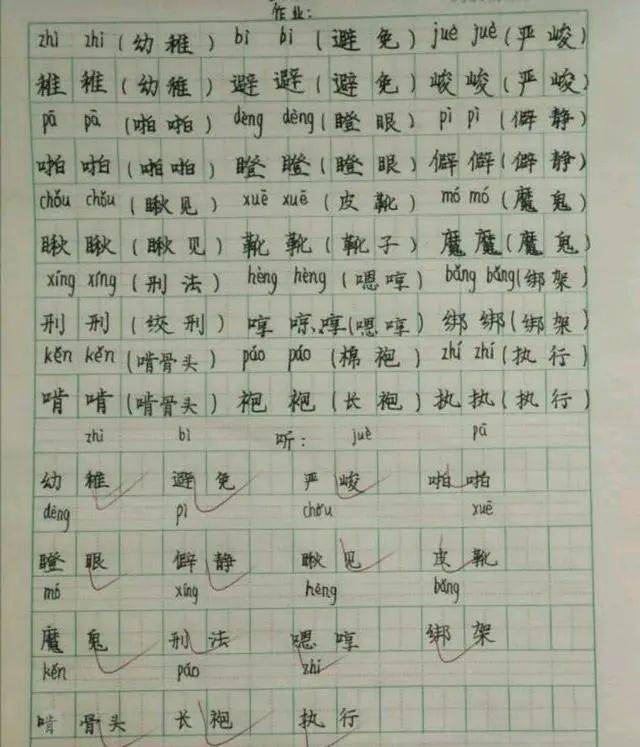 作业：
zhì zhì (幼稚) bì bì (避免) juè juè (严峻)
稚 稚 (幼稚) 避 避 (避免) 峻 峻 (严峻)
pā pā (啪啪) dèng dèng (瞪眼) pì pì (僻静)
啪 啪 (啪啪) 瞪 瞪 (瞪眼) 僻 僻 (僻静)
chǒu chǒu (瞅见) xuē xuē (皮靴) mó mó (魔鬼)
瞅 瞅 (瞅见) 靴 靴 (靴子) 魔 魔 (魔鬼)
xíng xíng (刑法) hèng hèng (嗯哼) bǎng bǎng (绑架)
刑 刑 (绞刑) 哼 哼 哼 (嗯哼) 绑 绑 (绑架)
kěn kěn (啃骨头) páo páo (棉袍) zhí zhí (执行)
啃 啃 (啃骨头) 袍 袍 (长袍) 执 执 (执行)
zhì bì 听： juè pā
幼稚 避免 严峻 啪啪
dèng pì chǒu xuē
瞪眼 僻静 瞅见 皮靴
mó xíng hēng bǎng
魔鬼 刑法 嗯哼 绑架
kěn páo zhí
啃骨头 长袍 执行